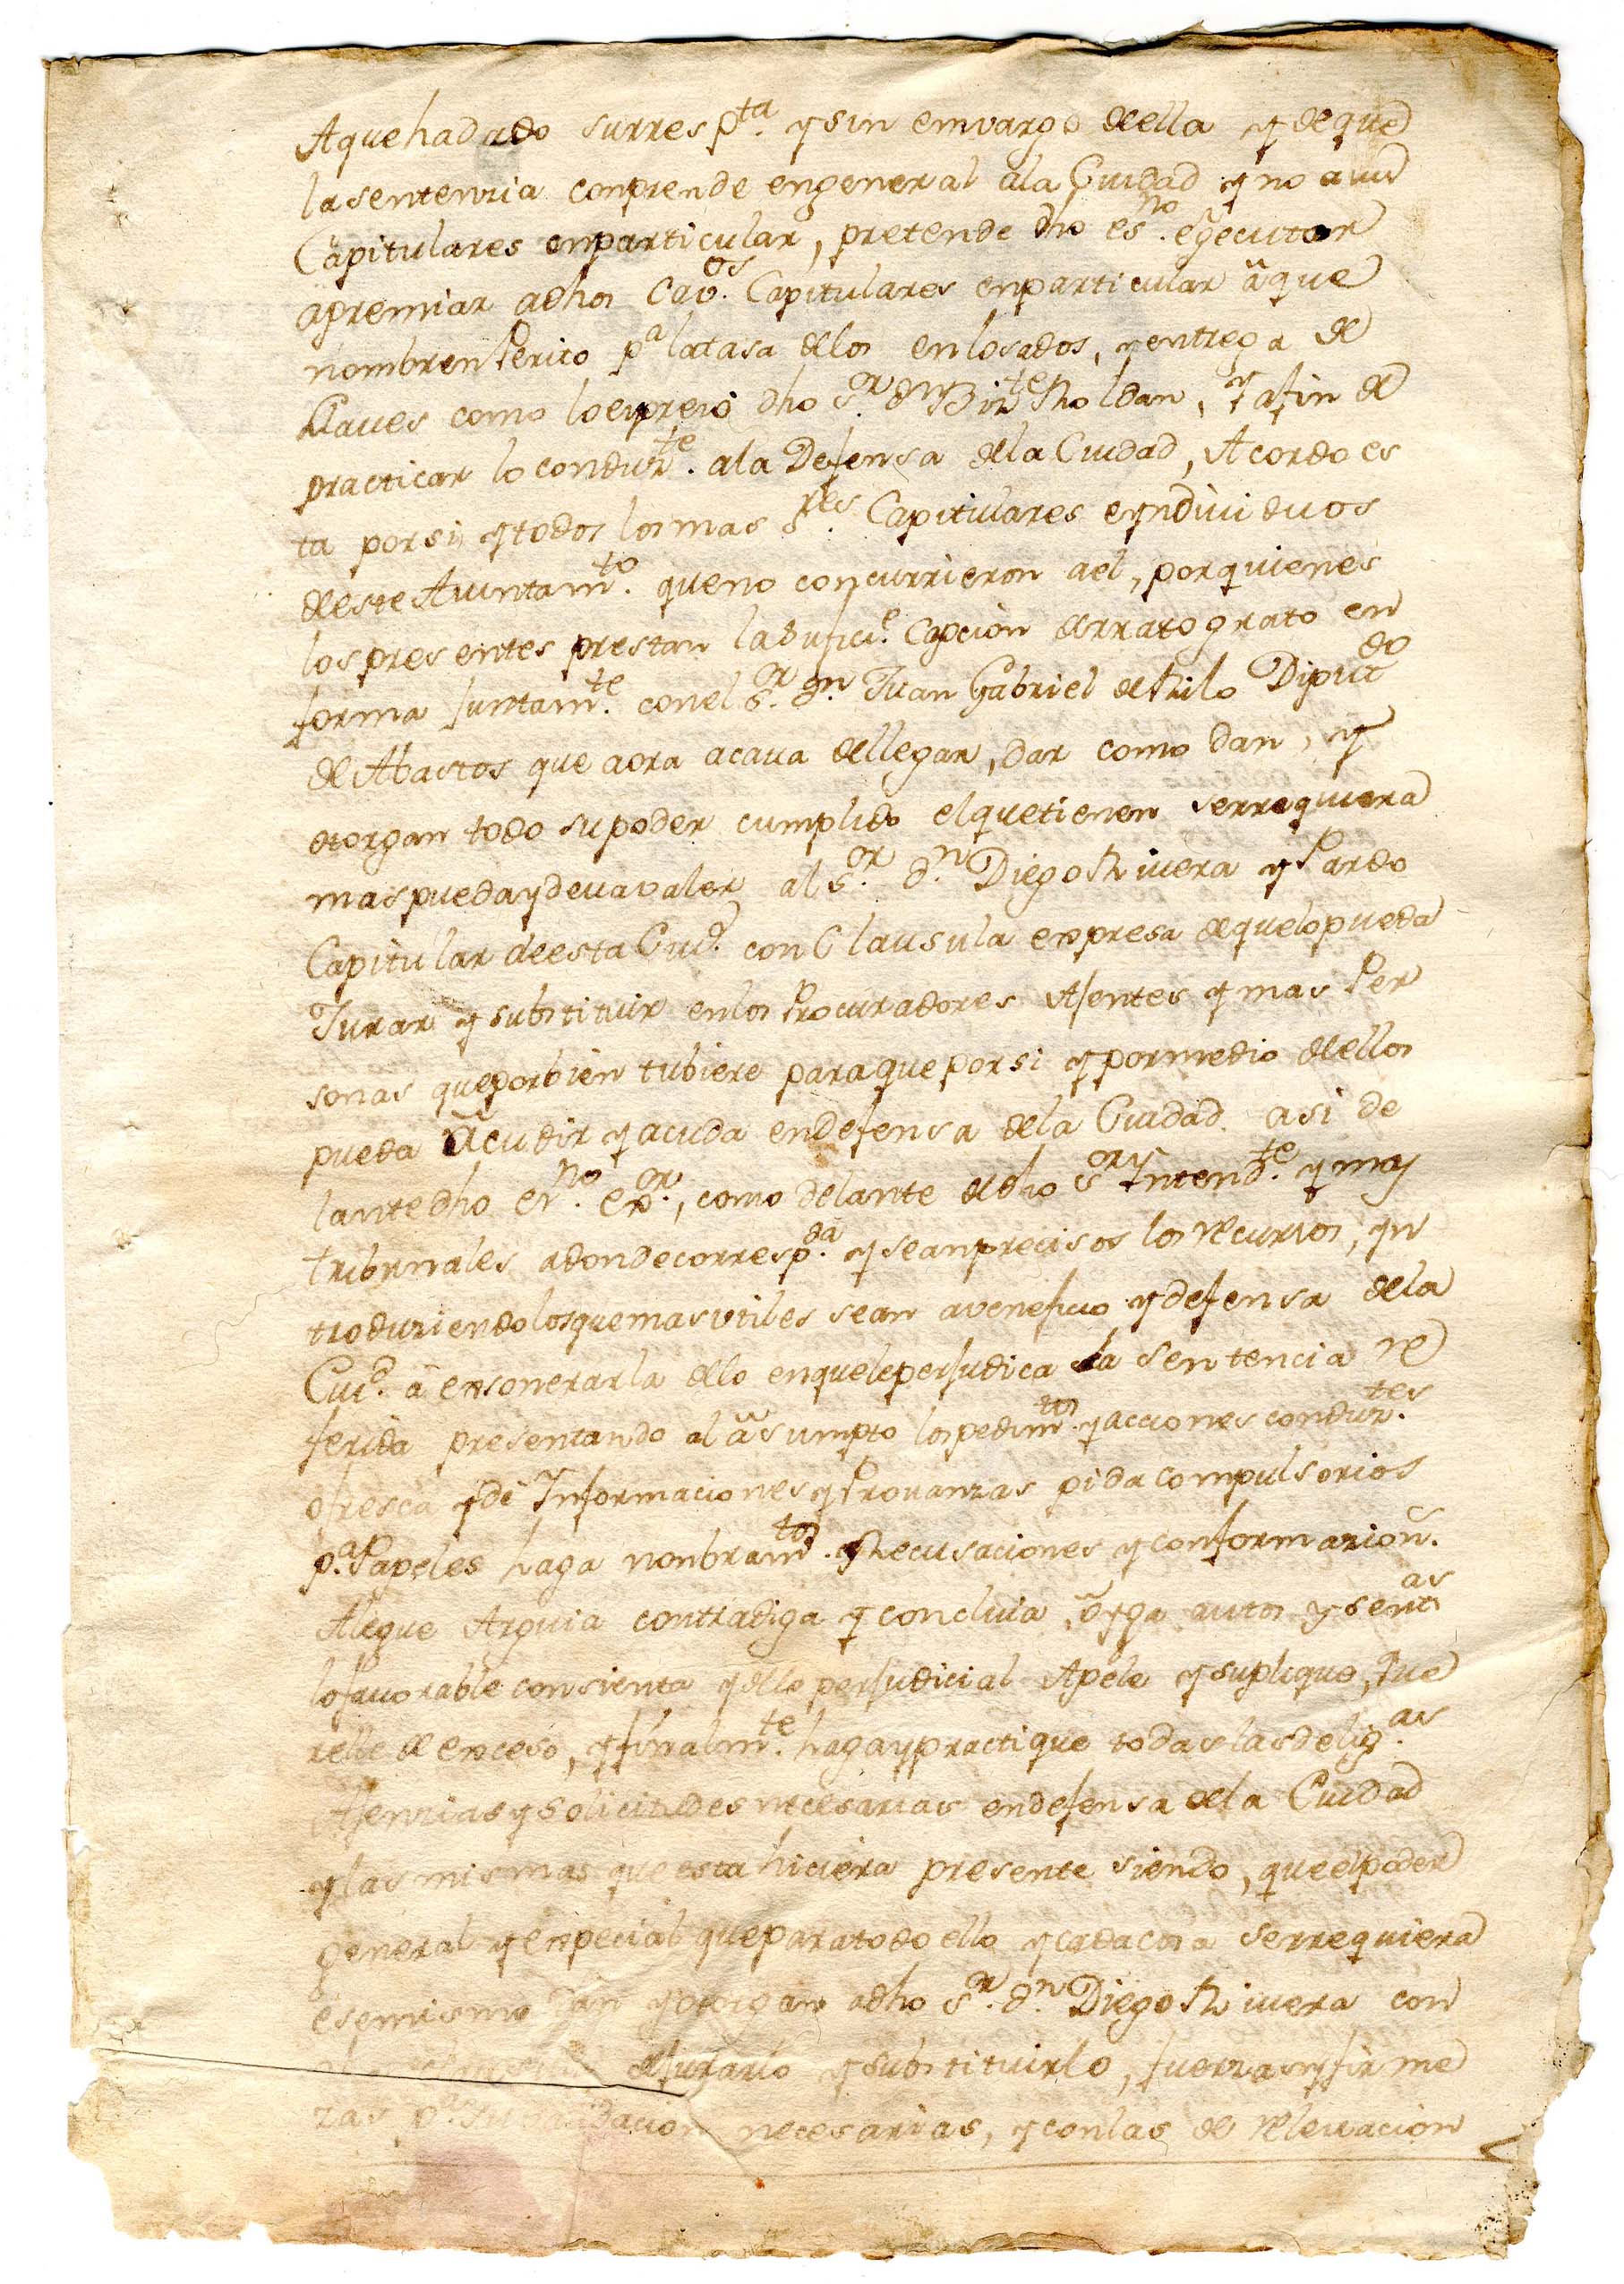 A que ha dado surresp.ta y sin envargo della y de que
la sentenzia conprende en general ala Ciudad y no a sus
Capitulares en particular, pretende dho es.no egecutor
apremiar adhos Cav.os Capitulares en particular a que
nombren Perito p.a la tasa delos enlosados, y entrega de
llaves como lo expreso dho S.or d.n Biz.te Rholdan, y a fin de
practicar lo conduz.te ala Defensa dela Ciudad, Acordo es
ta por si y todos los mas S.res Capitulares eyndividuos
de este Auntam.to que no concurrieron ael, por quienes
los presentes prestan la sufici.e Capcion derrato grato en
forma Juntam.te con el S.or d.n Juan Gabriel de Rilo Diputado
de Abastos que aora acava de llegar, dar como dan, y
otorgan todo su poder cumplido el que tienen serrequiera
mas pueda y deva valer al S.or d.n Diego Rivera y Pardo
Capitular de esta Ciud.d con Clausula expresa de que lo pueda
Jurar y substituir en los Procuradores Ajentes y mas Per
sonas que por bien tubiere para que por si y por medio dellos
pueda acudir y acuda en defensa dela Ciudad asi de
lante dho es.no ex.or, como delante de dho S.or Yntend.te y mas
tribunales adonde corresp.da y sean precisos los recursos, yn
troduziendo los que mas utiles sean a veneficio y defensa dela
Ciu.d a exsonerarla dello en que le perjudica la sentencia re
ferida presentando al asumpto los pedim.tos y acciones conduz.tes
ofresca y de Informaciones y Provanzas pida compulsorios
p.a Papeles haga nonbram.to Recusaciones y conformazion.
Alegue Arguia contradiga y concluia, oyga autos y sent.as
lo favorable consienta y dello perjudicial Apele y suplique, que
relle de exceso, y finalm.te haga y practique todas las delig.as
Ajenzias y solicitudes necesarias en defensa dela Ciudad
y las mismas que esta hiciera presente siendo, que el poder
general y expecial que para todo ello y cada cosa serrequiera
ese mismo Dan y otorgan adho S.or d.n Diego Rivera con
de jurarlo y substituirlo, fuerzas y firme
zas p.a necesarias, y con las de relevacion